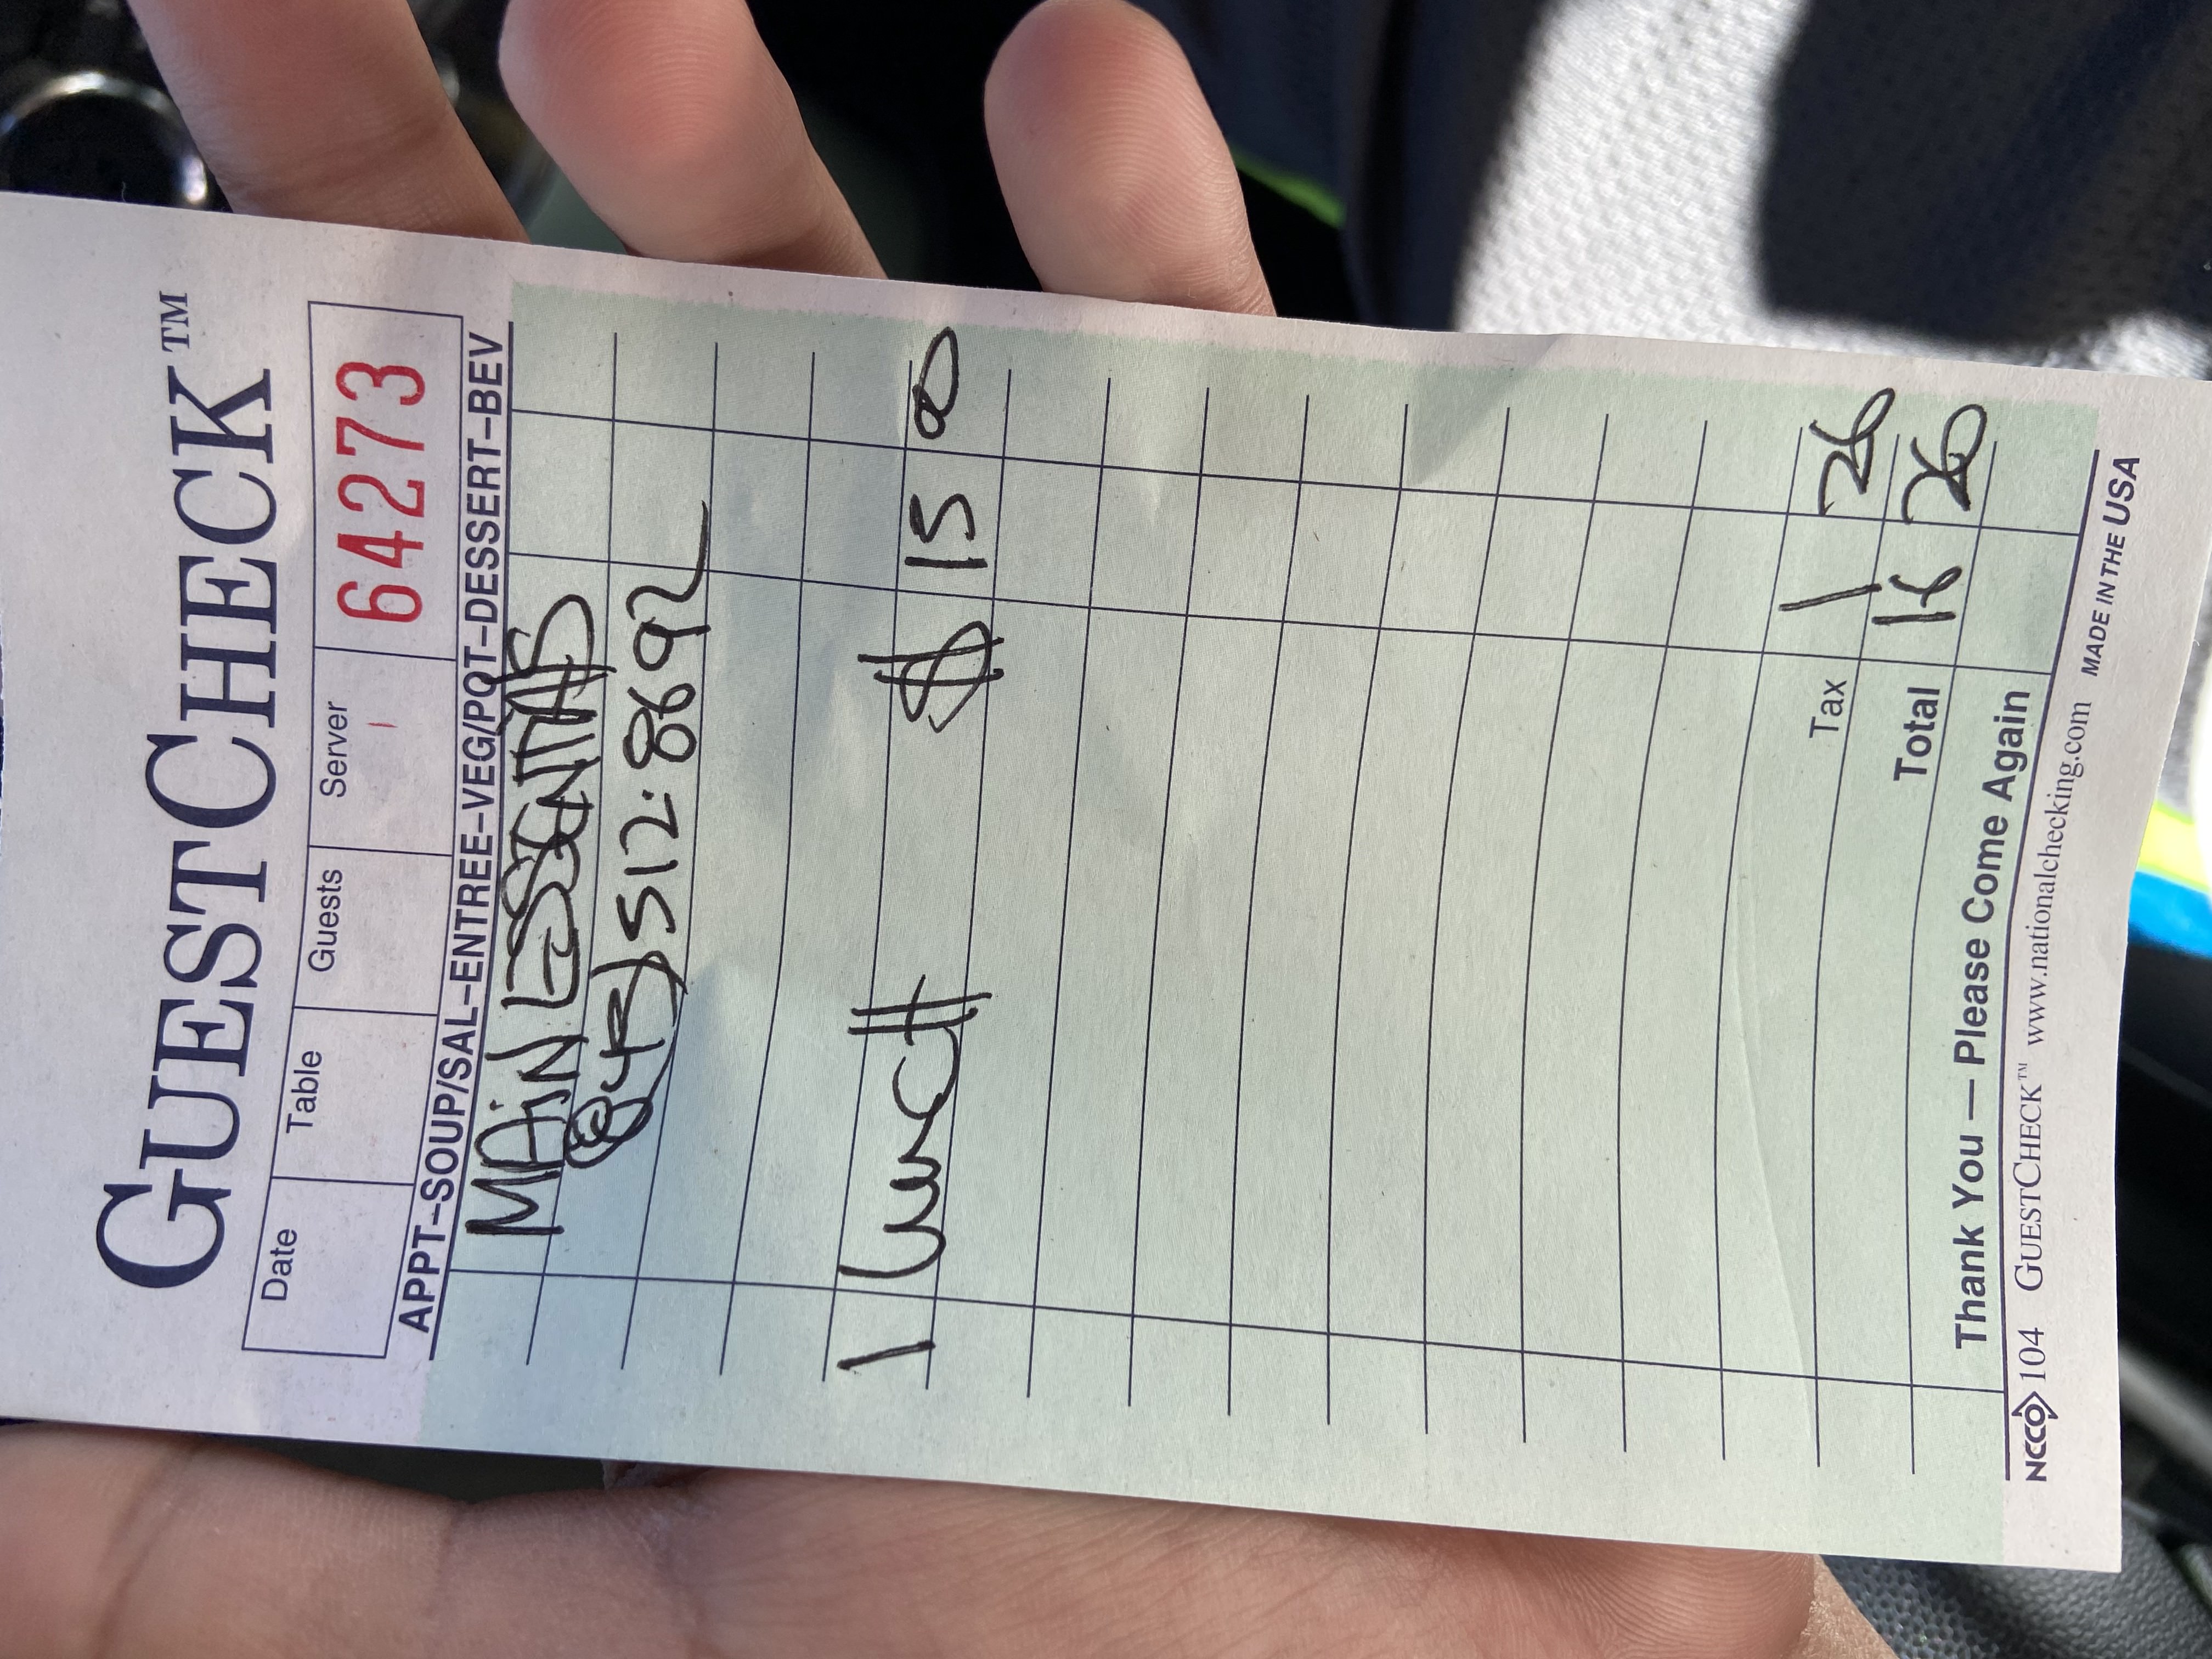 GUESTCHECK™
Date Table Guests Server 64273
APPT–SOUP/SAL–ENTREE–VEG/POT–DESSERT–BEV
MAiN ESSENTIALS
(843) 512-8692
1 lunch $ 15 00
Tax 1 26
Total 16 26
Thank You — Please Come Again
NCCO 104 GUESTCHECK™ www.nationalchecking.com MADE IN THE USA